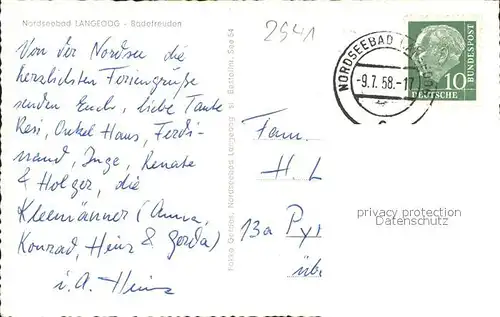 Nordseebad LANGEOOG - Badefreuden
2941
Von der Nordsee die
herzlichsten Feriengrüße
senden Euch, liebe Tante
Resi, Onkel Hans, Ferdi-
nand, Inge, Renate
& Holger, die
Kleemänner (Anna,
Konrad, Heinz & Gerda)
i. A. Heinz
Nordseebad Langeoog
See 64
NORDSEEBAD LA
-9.7.58.-17
10
DEUTSCHE
BUNDESPOST
Fam.
H. L
13a Py
üb
privacy protection
Datenschutz